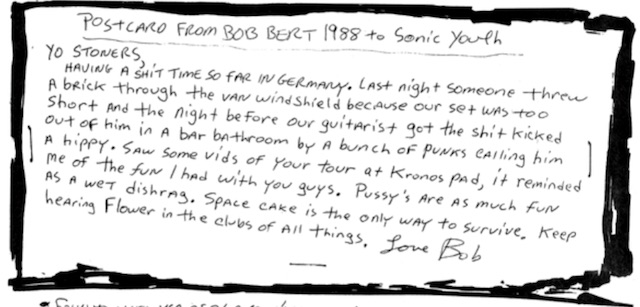 POSTCARD FROM BOB BERT 1988 to Sonic Youth
YO STONERS,
HAVING A SHIT TIME SO FAR IN GERMANY. LAST night someone threw
A brick through the VAN windshield because our set WAS too
short AND the night before our guitarist got the shit kicked
out of him in A bar bathroom by A bunch of PUNKS CALLING him
A hippy. SAW some vids of your tour at Kronos PAD, it reminded
me of the fun I had with you guys. Pussy's ARE AS much fun
AS A WET dishrag. SPACE CAKE is the only way to survive. Keep
hearing Flower in the clubs of All things. Love Bob